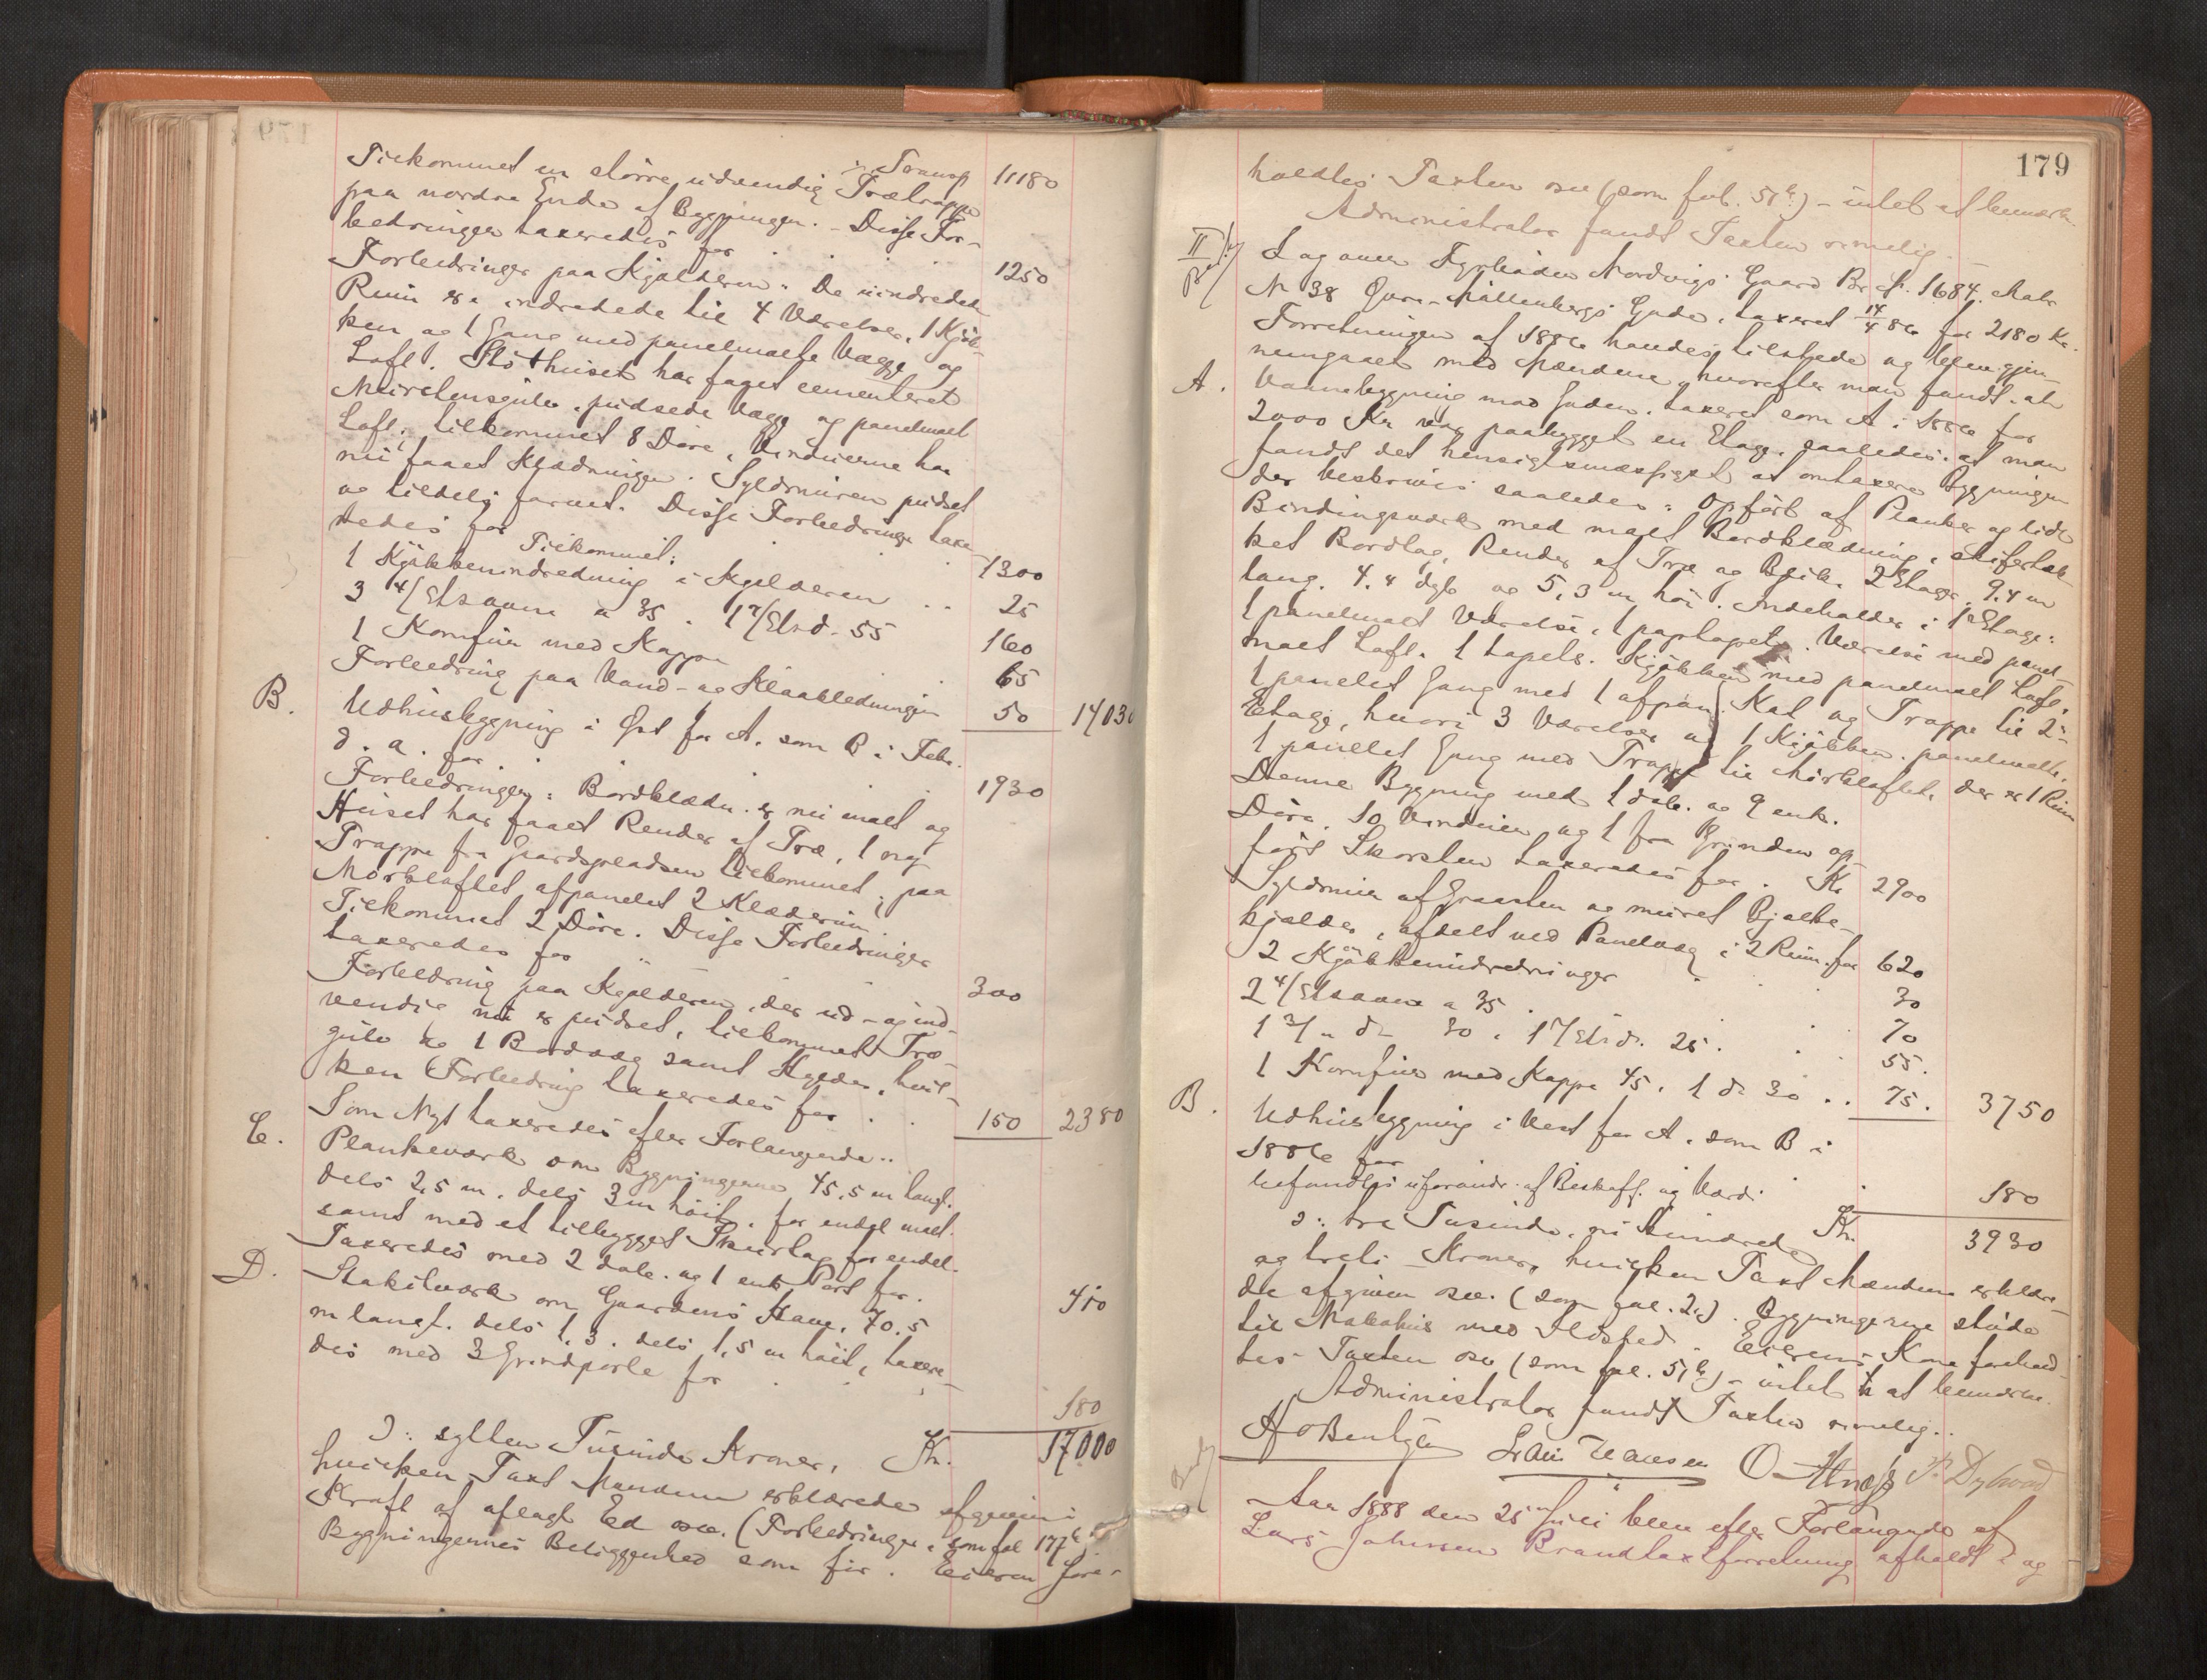 Transp 11180
Tilkommet en større udvendig Trætrappe
paa nordre Ende af Bygningen. - Disse For-
bedringer taxeredes for 1250
Forbedringer paa Kjælderen: De uindredede
Rum er indredede til 4 Værelser, 1 Kjøk-
ken og 1 Gang med panelmalte Vægge og
Loft. har faaet cementeret
Murstensgulv, pudsede Vægge og panelmalt
Loft, tilkommet 8 Døre, Vinduerne har
nu faaet Klædninger. Syldmuren pudset
og tildels farvet. Disse Forbedringer taxe-
redes for 1300
Tilkommet:
1 Kjøkkenindredning i Kjælderen .. 25
3 4/Etsovne a 35. 1 7/Et. d. 55 160
1 Komfur med Kappe 65
Forbedring paa Vand- og Kloakledningen 50 14030
B. Udhusbygning i Øst for A. som B i Febr.
d. a. for 1930
Forbedringer: Bordklædn. er nu malt og
Huset har faaet Render af Træ, 1 ny
Trappe fra Gaardspladsen tilkommet, paa
Mørkloftet afpanelet 2 Klæderum.
Tilkommet 2 Døre. Disse Forbedringer
taxeredes for 300
Forbedring paa Kjælderen, der ud- og ind-
vendig nu er pudset, tilkommet Træ-
gulv og 1 Bordvæg samt Hylder, hvil-
ken Forbedring taxeredes for 150 2380
Som Nyt taxeredes efter Forlangende:
C. Plankeværk om Bygningerne 45.5 m langt.
dels 2,5 m. dels 3 m høit, for endel malt.
samt med et tilbygget Skurtag for endel.
Taxeredes med 2 dobb. og 1 enk Port for. 410
D. Stakitværk om Gaardens Have, 70.5
m langt. dels 1.3. dels 1,5 m høit, taxere-
des med 3 Grindporte for 180
Kr. 17000
ɔ: sytten Tusinde Kroner,
hvilken Taxt Mændene erklærede afgiven i
Kraft af aflagt Ed osv. (Forbedringer, som fol 177b)
Bygningernes Beliggenhed som før. Eieren fore-
179
holdtes Taxten osv (som fol. 51b) - intet at bemærke.
Administrator fandt Taxten rimelig.
II Lagauer Fyrbøder Nordvigs Gaard Br. No. 1684. Matr
No 38 Øvre-Møllenbergs Gade, taxeret 14/4 86 for 2180 Kr.
Forretningen af 1886 havdes tilstede og blev gjen-
nemgaaet med Mændene, hvorefter man fandt, at
A. Vaanebygning mod Gaden, taxeret som A i 1886 for
2000 Kr var paabygget en Etage, saaledes at man
fandt det hensigtsmæssigst at omtaxere Bygningen
der beskrives saaledes: Opført af Planker og lidt
Bindingsværk med malt Bordklædning, skifertæk-
ket Bordtag, Render af Træ og Blik. 2 Etager, 9.4 m
lang. 4.4 dyb og 5,3 m høi. Indeholder i 1e Etage:
1 panelmalt Værelse, 1 paptapets. Værelse med panel-
malt Loft. 1 tapets. Kjøkken med panelmalt Loft,
1 panelet Gang med 1 afpan. Kot og Trappe til 2e-
Etage, hvori 3 Værelser og 1 Kjøkken. panelmalte.
1 panelet Gang med Trappe til Mørkloftet, der er 1 Rum
Denne Bygning med 1 dob. og 9 enk.
Døre, 10 Vinduer og 1 fra Grunden op-
ført Skorsten taxeredes for. Kr 2900
Syldmur af Graasten og muret Bjælke-
kjælder, afdelt ved Panelvæg i 2 Rum, for 620
2 Kjøkkenindredninger 30
2 4/Etsovne a 35 70
1 3/" do 30, 1 7/Et. d. 25. 55.
1 Komfur med Kappe 45. 1 do 30 .. 75. 3750
B. Udhusbygning i Vest for A. som B i
1886 for
befandtes uforandr. af Beskaff. og Værdi 180
Kr. 3930
ɔ: tre Tusinde, ni Hundrede
og treti Kroner, hvilken Taxt Mændene erklære-
de afgiven osv. (som fol. 2.). Bygningerne støde
til Nabohus med Ildsted. Eierens Kone forehold-
tes Taxten osv (som fol. 51b) - intet at bemærke.
Administrator fandt Taxten rimelig..
Hansen
Aar 1888 den 25 Juli blev efter Forlangende af
Lars Johnsen Brandtaxtforretning afholdt og